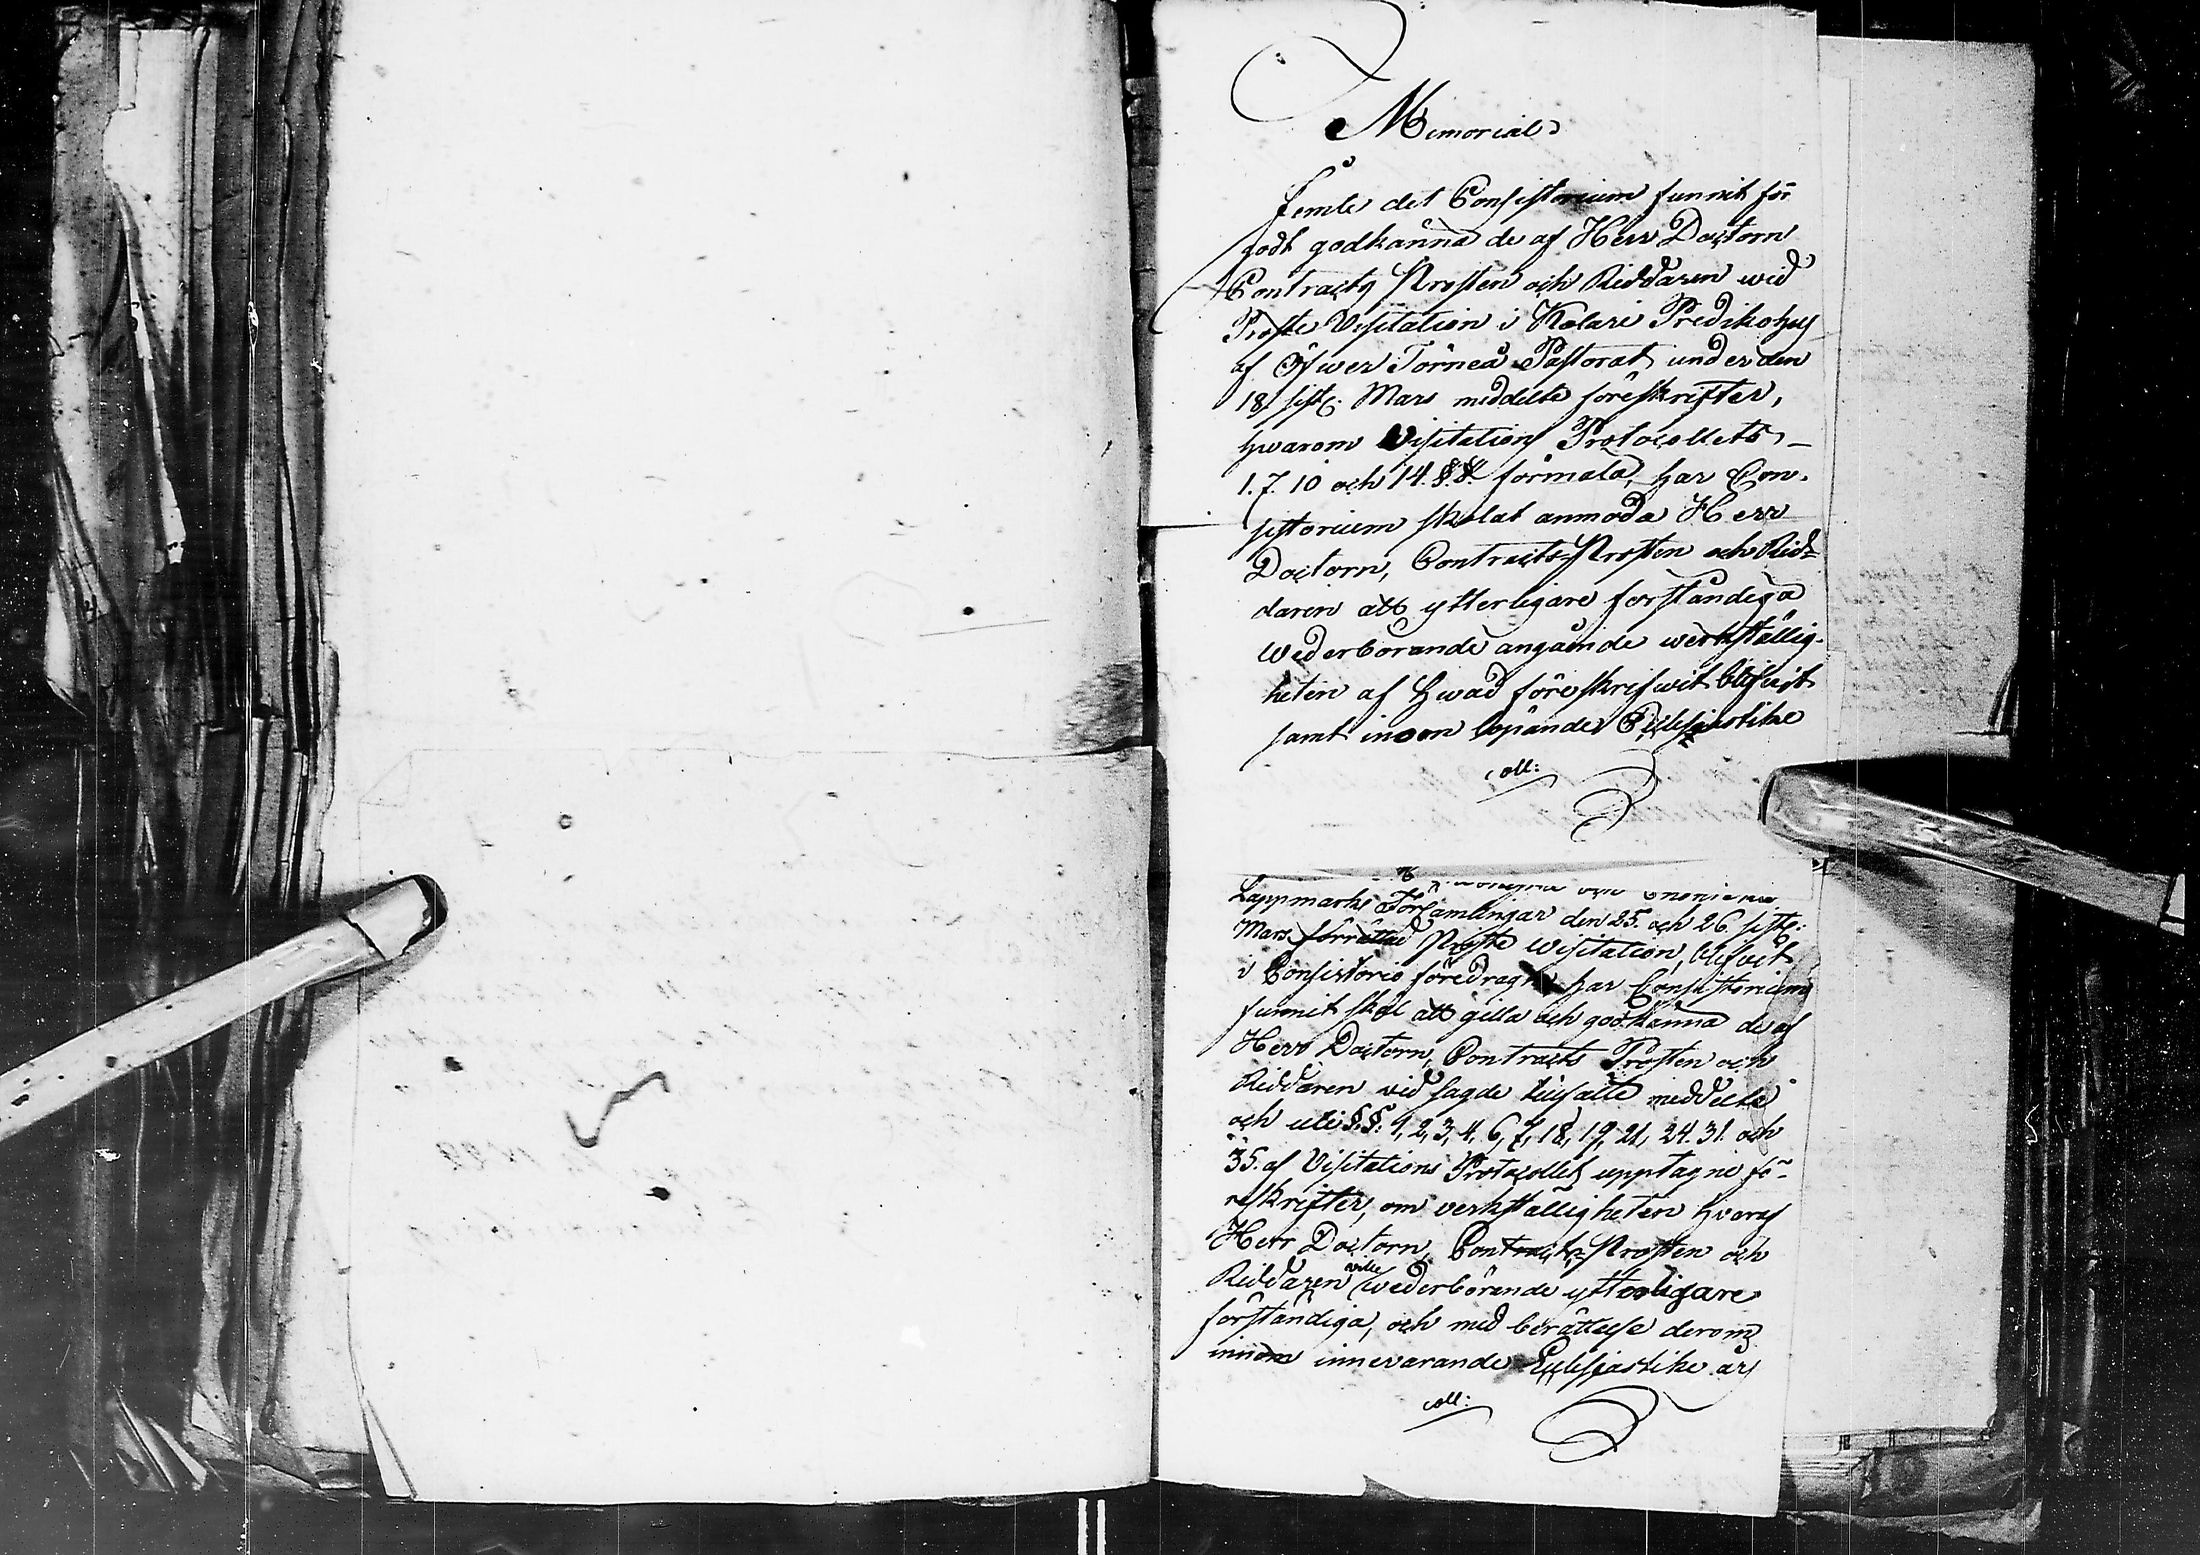 Memorial
Jemte det Consistorium funnit för
godt godkänna de af Herr Doctorn
Contracts Prosten och Riddaren wid
Proste Visitation i Kolari Predikohus
af Öfwer Torneå Pastorat under den
18 sistl. Mars meddelte föreskrifter,
hwarom Visitations Protocollets
1. 7. 10 och 14. §.§. förmäla, har Con-
sistorium skolat anmoda Herr
Doctorn, Contracts-Prosten och Rid-
daren att ytterligare förständiga
wederbörande angående werkställig-
heten af hwad föreskrifwit blifwit
samt innom löpande Ecclesiastike
coll:
Lappmarks Församlingar den 25. och 26. sistl:
Mars förrättad Proste Wisitation, blifvit
i Consistorio föredragne har Consistorium
funnit skäl att gilla och godkänna de af
Herr Doctorn, Contracts Prosten och
Riddaren vid sagde tillfälle meddelte
och uti §.§. 1, 2, 3, 4, 6, 7, 18, 19, 21, 24. 31. och
35. af Visitations Protocollet upptagne fö-
reskrifter, om verkställigheten hvaraf
Herr Doctorn, Contracts-Prosten och
Riddaren wille wederbörande ytterligare
förständiga, och med berättelse derom
innom innevarande Ecclesiastike år
coll: